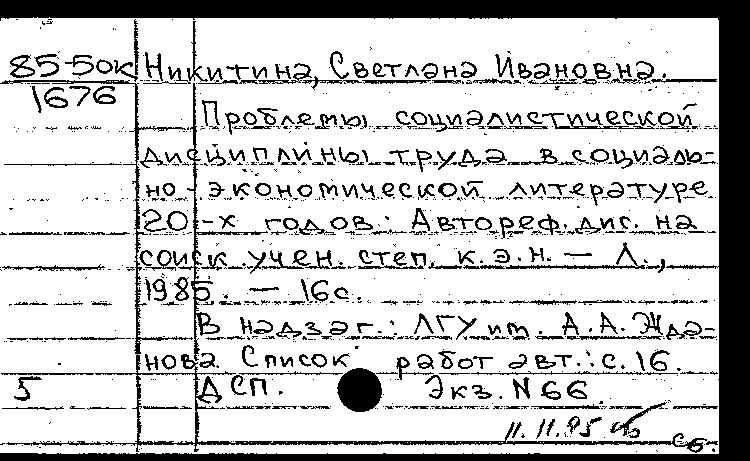 85-5ок Никитина, Светлана Ивановна.
1676
Проблемы социалистической
дисциплины труда в социаль-
но-экономической литературе
20-х годов: Автореф. дис. на
соиск учен. степ. к.э.н. — Л.,
1985. — 16с.
В надзаг.: ЛГУ им. А.А. Жда-
нова. Список работ авт.: с. 16.
5 ДСП. Экз. N 66
11.11.85
сб.